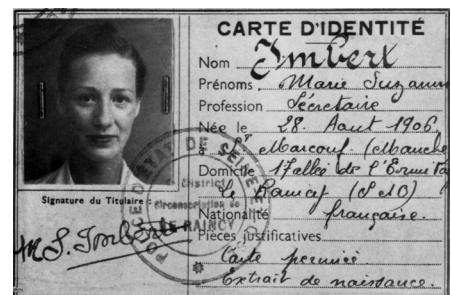 CARTE D'IDENTITÉ
Nom Imbert
Prénoms Marie Suzanne
Profession Sécretaire
Née le 28. Aout 1906
St Marcouf. (Manche
Domicile 17 allée de l'Ermita
Le Raincy (S & O)
Nationalité française.
Pièces justificatives
Carte permice
Extrait de naissance.
Signature du Titulaire :
M S. Imbert
POLICE D'ETAT DE SEINE
District
Circonscription de
LE RAINCY